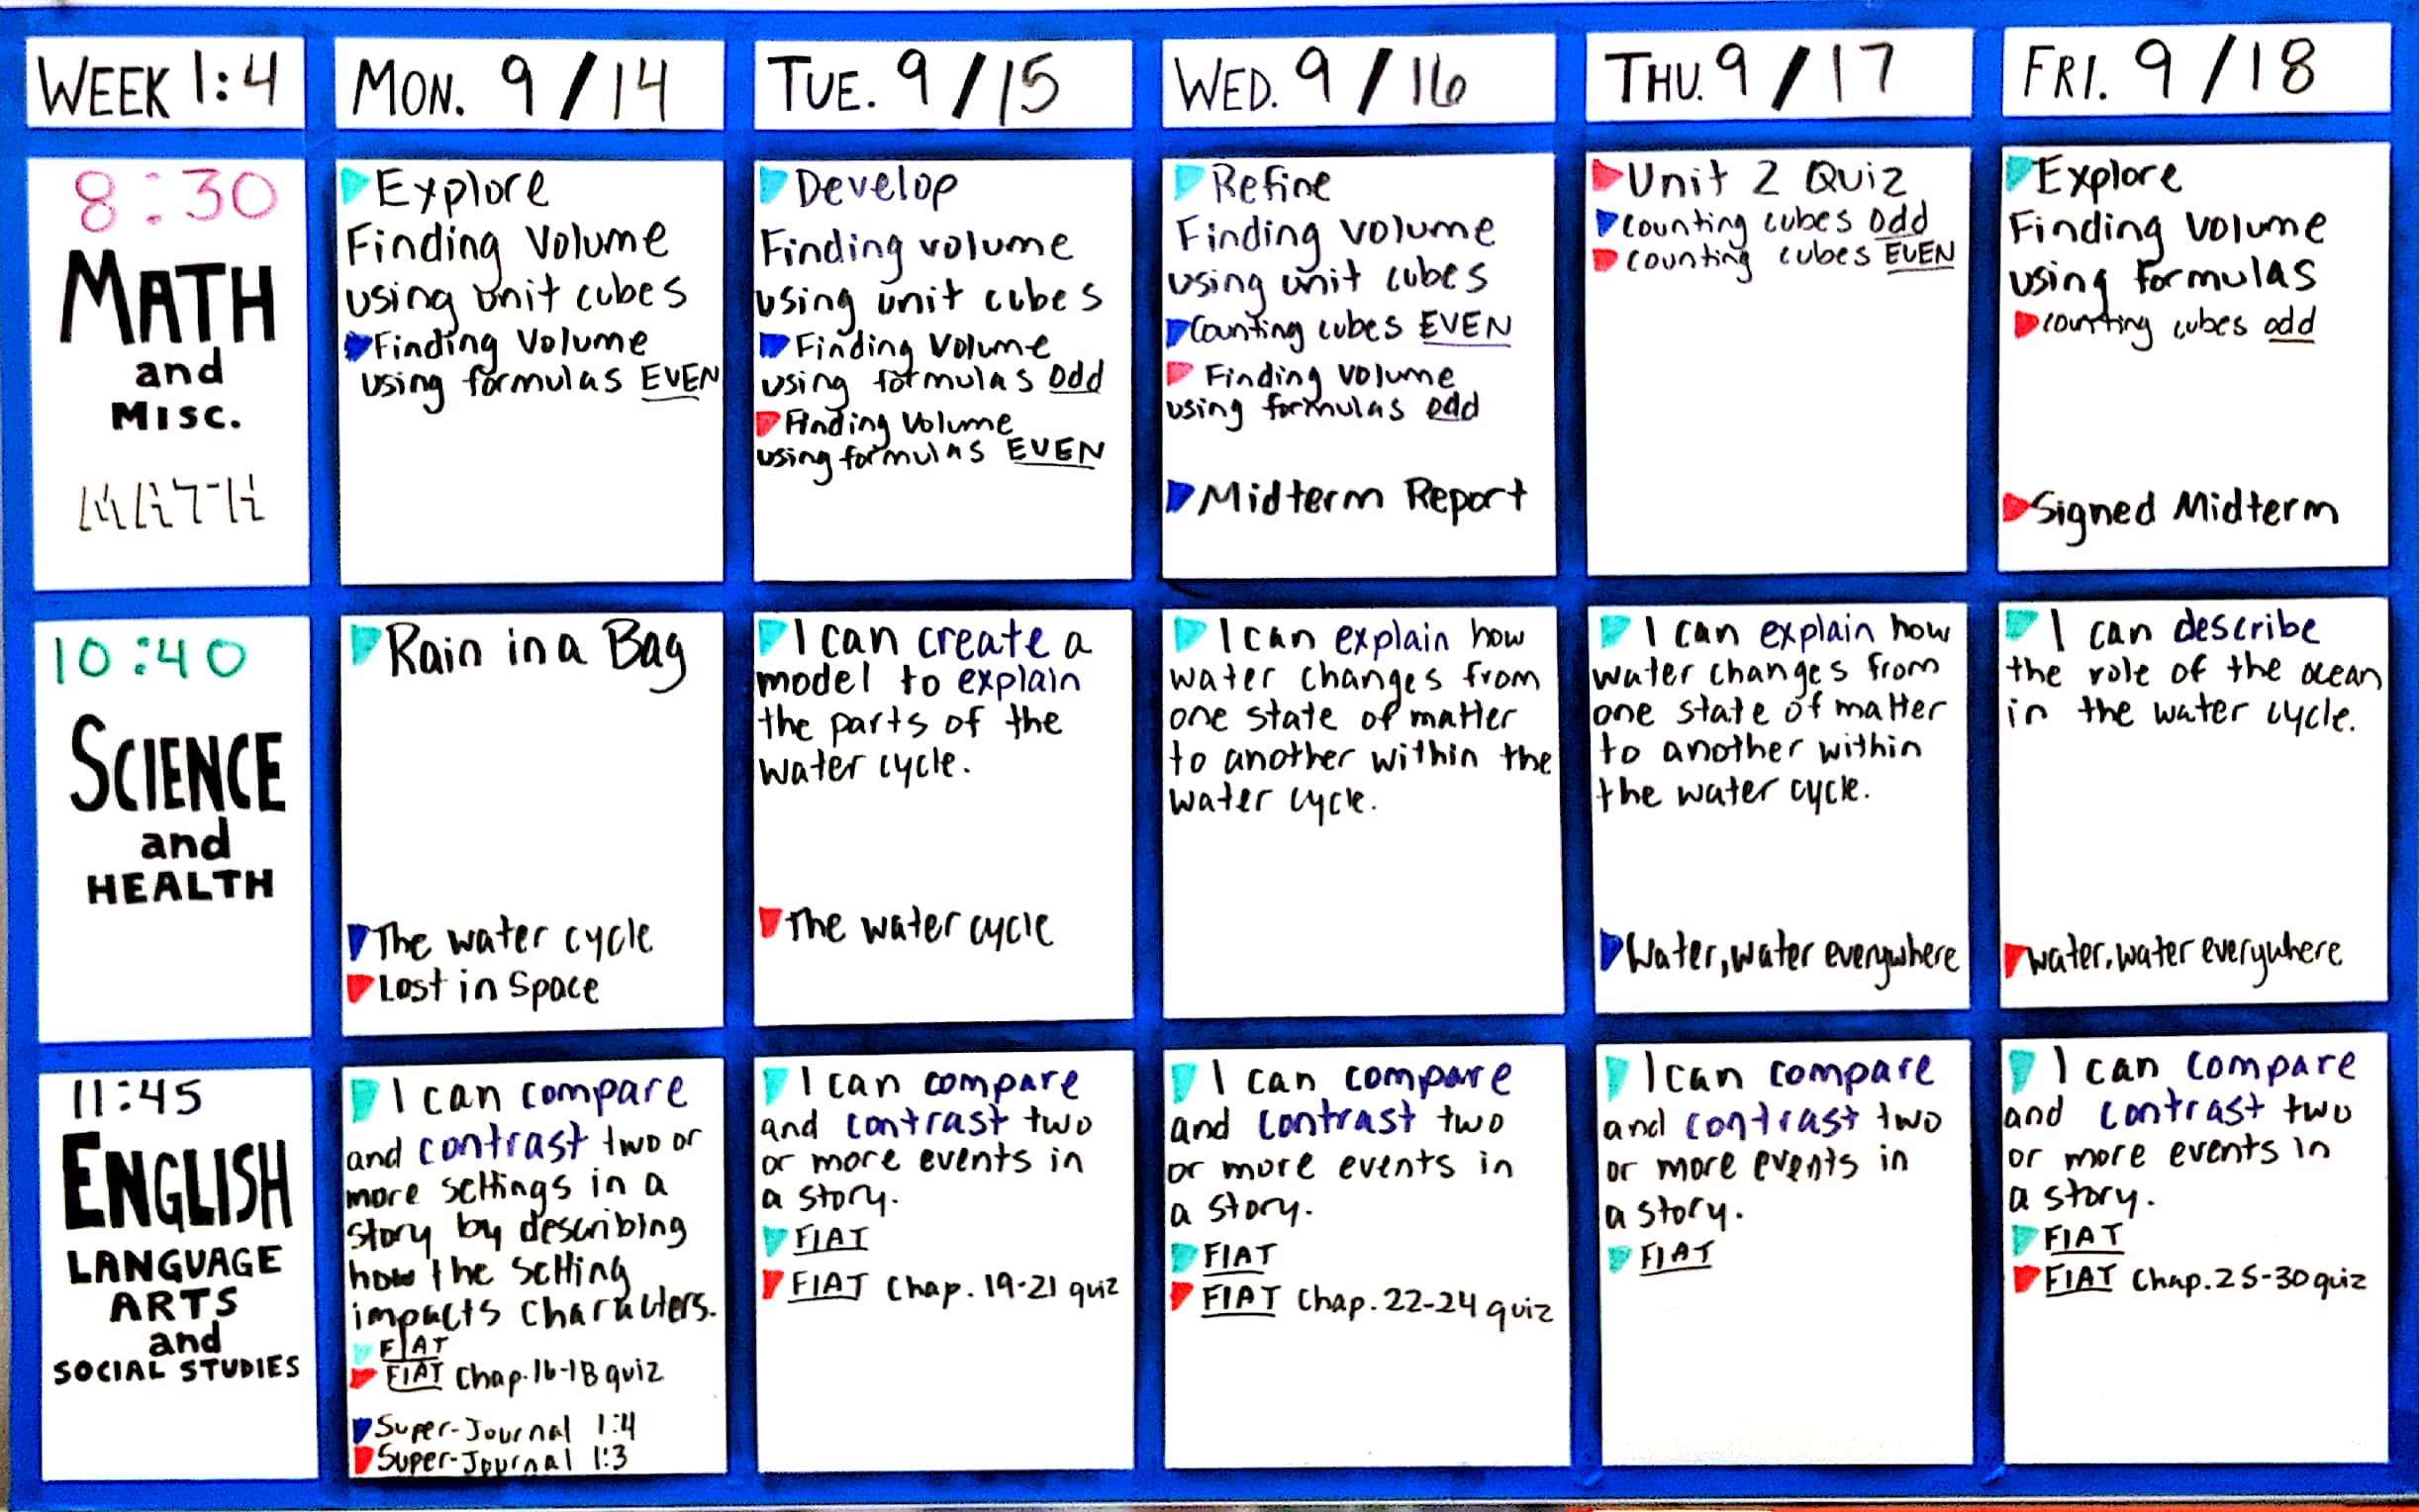 WEEK 1:4
MON. 9/14
TUE. 9/15
WED. 9/16
THU. 9/17
FRI. 9/18
8:30
MATH
and
MISC.
MATH
Explore
Finding Volume
using unit cubes
Finding Volume
using formulas EVEN
Develop
Finding volume
using unit cubes
Finding Volume
using formulas Odd
Finding Volume
using formulas EVEN
Refine
Finding volume
using unit cubes
Counting cubes EVEN
Finding volume
using formulas odd
Midterm Report
Unit 2 Quiz
Counting cubes Odd
Counting cubes EVEN
Explore
Finding volume
using formulas
Counting cubes odd
Signed Midterm
10:40
SCIENCE
and
HEALTH
Rain in a Bag
The water cycle
Lost in Space
I can create a
model to explain
the parts of the
water cycle.
The water cycle
I can explain how
water changes from
one state of matter
to another within the
water cycle.
I can explain how
water changes from
one state of matter
to another within
the water cycle.
Water, water everywhere
I can describe
the role of the ocean
in the water cycle.
water, water everywhere
11:45
ENGLISH
LANGUAGE
ARTS
and
SOCIAL STUDIES
I can compare
and contrast two or
more settings in a
story by describing
how the setting
impacts characters.
FIAT
FIAT Chap. 16-18 quiz
Super-Journal 1:4
Super-Journal 1:3
I can compare
and contrast two
or more events in
a story.
FIAT
FIAT Chap. 19-21 quiz
I can compare
and contrast two
or more events in
a story.
FIAT
FIAT Chap. 22-24 quiz
I can compare
and contrast two
or more events in
a story.
FIAT
I can compare
and contrast two
or more events in
a story.
FIAT
FIAT Chap. 25-30 quiz